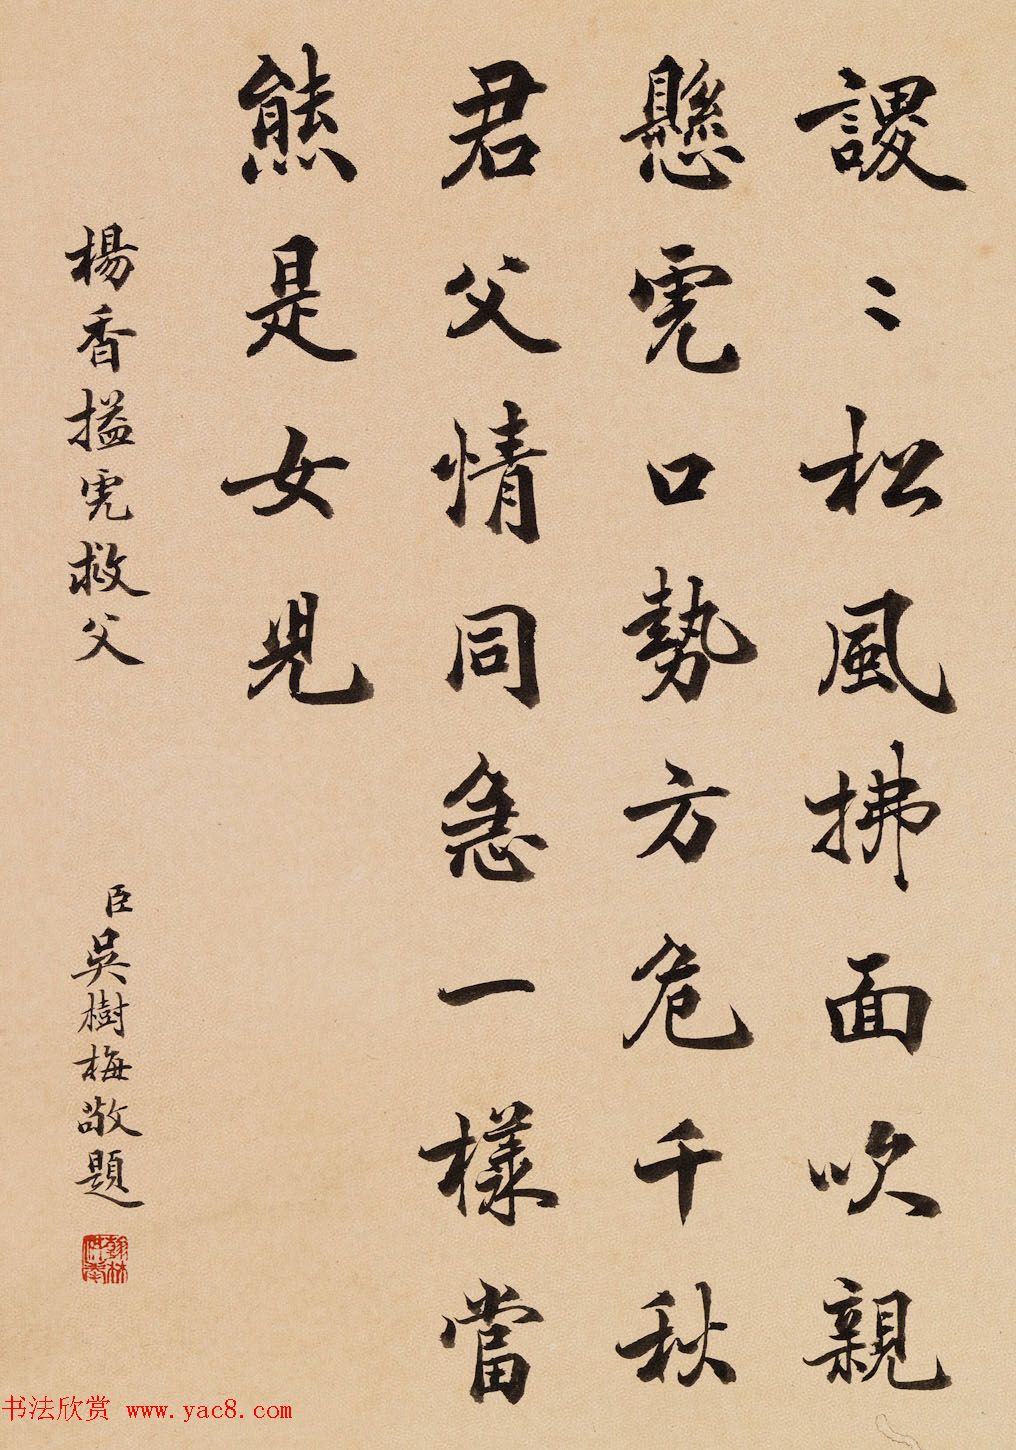 謖〻松風拂面吹親
懸虎口勢方危千秋
君父情同急一樣當
熊是女兒
楊香搤虎救父
臣吳樹梅敬題
翰林供奉
书法欣赏 www.yac8.com